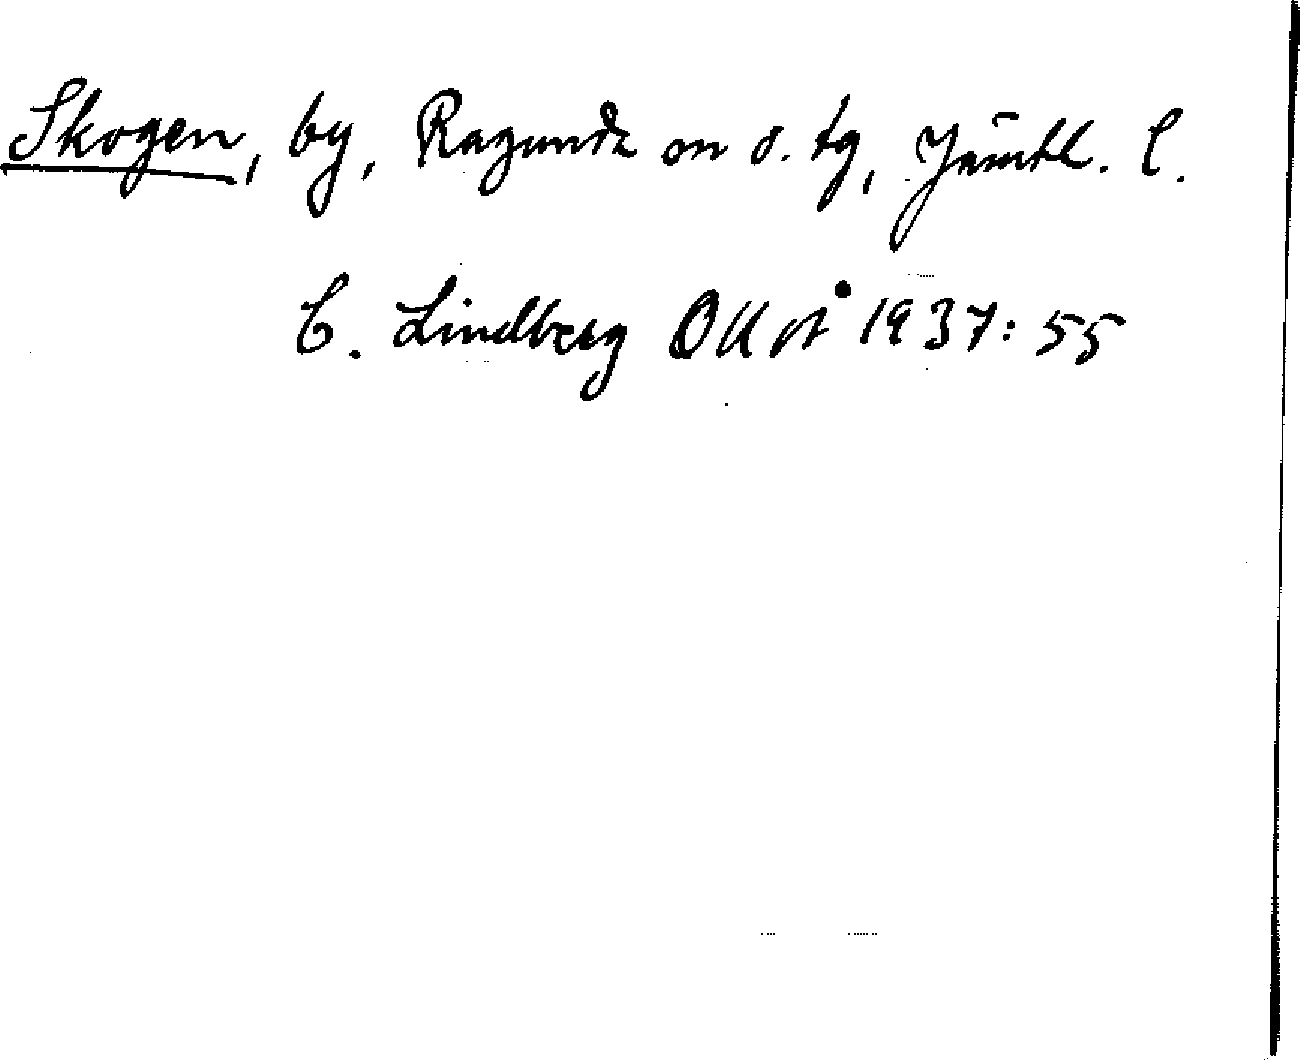 Skogen, by, Ragunda sn o. tg, Jämtl. l.
C. Lindberg OUÅ 1937: 55